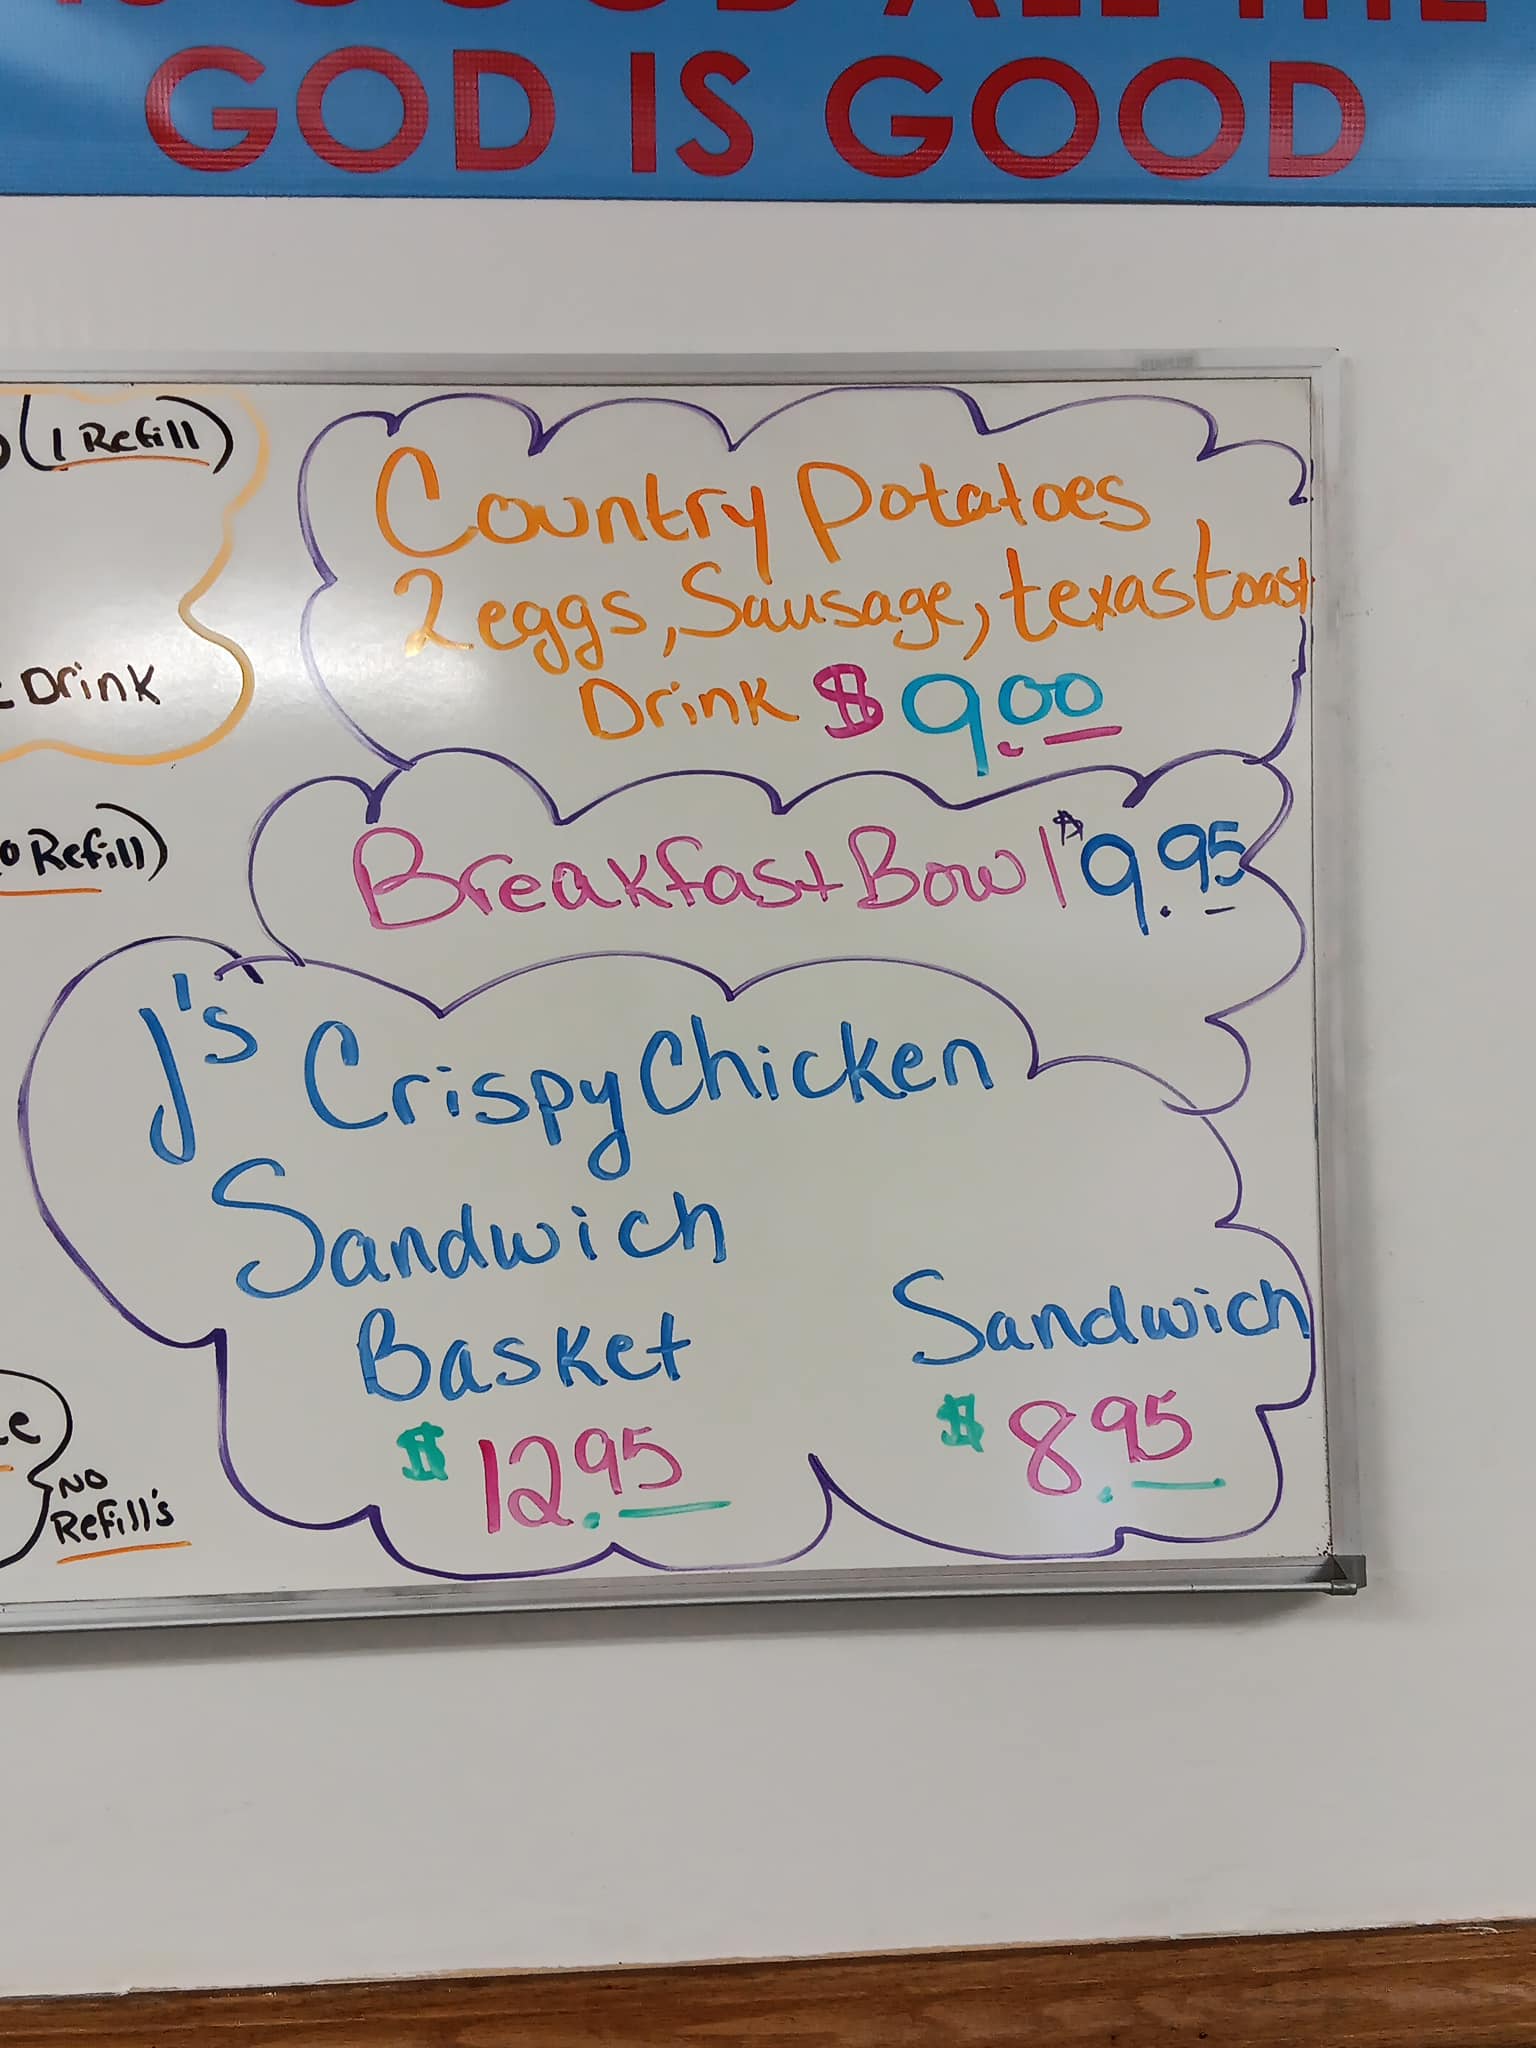 GOOD ALL THE
GOD IS GOOD
(1 Refill)
Drink
Refill)
NO
Refill's
Country Potatoes
2 eggs, Sausage, texas toast
Drink $9.00
Breakfast Bowl $9.95
J's Crispy Chicken
Sandwich
Basket
$12.95
Sandwich
$8.95